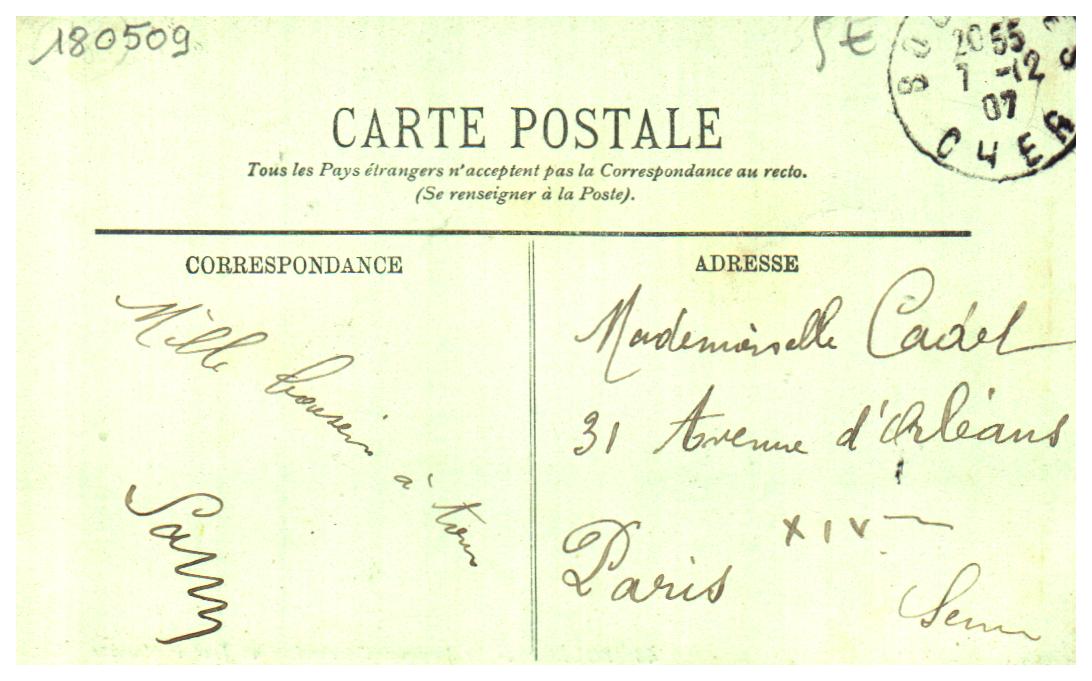 180509
5 €
20 55
7 -12
07
CHER
CARTE POSTALE
Tous les Pays étrangers n'acceptent pas la Correspondance au recto.
(Se renseigner à la Poste).
CORRESPONDANCE
Mille
à tous
ADRESSE
Mademoiselle Cadel
31 Avenue d'Orléans
XIV
Paris
Seine